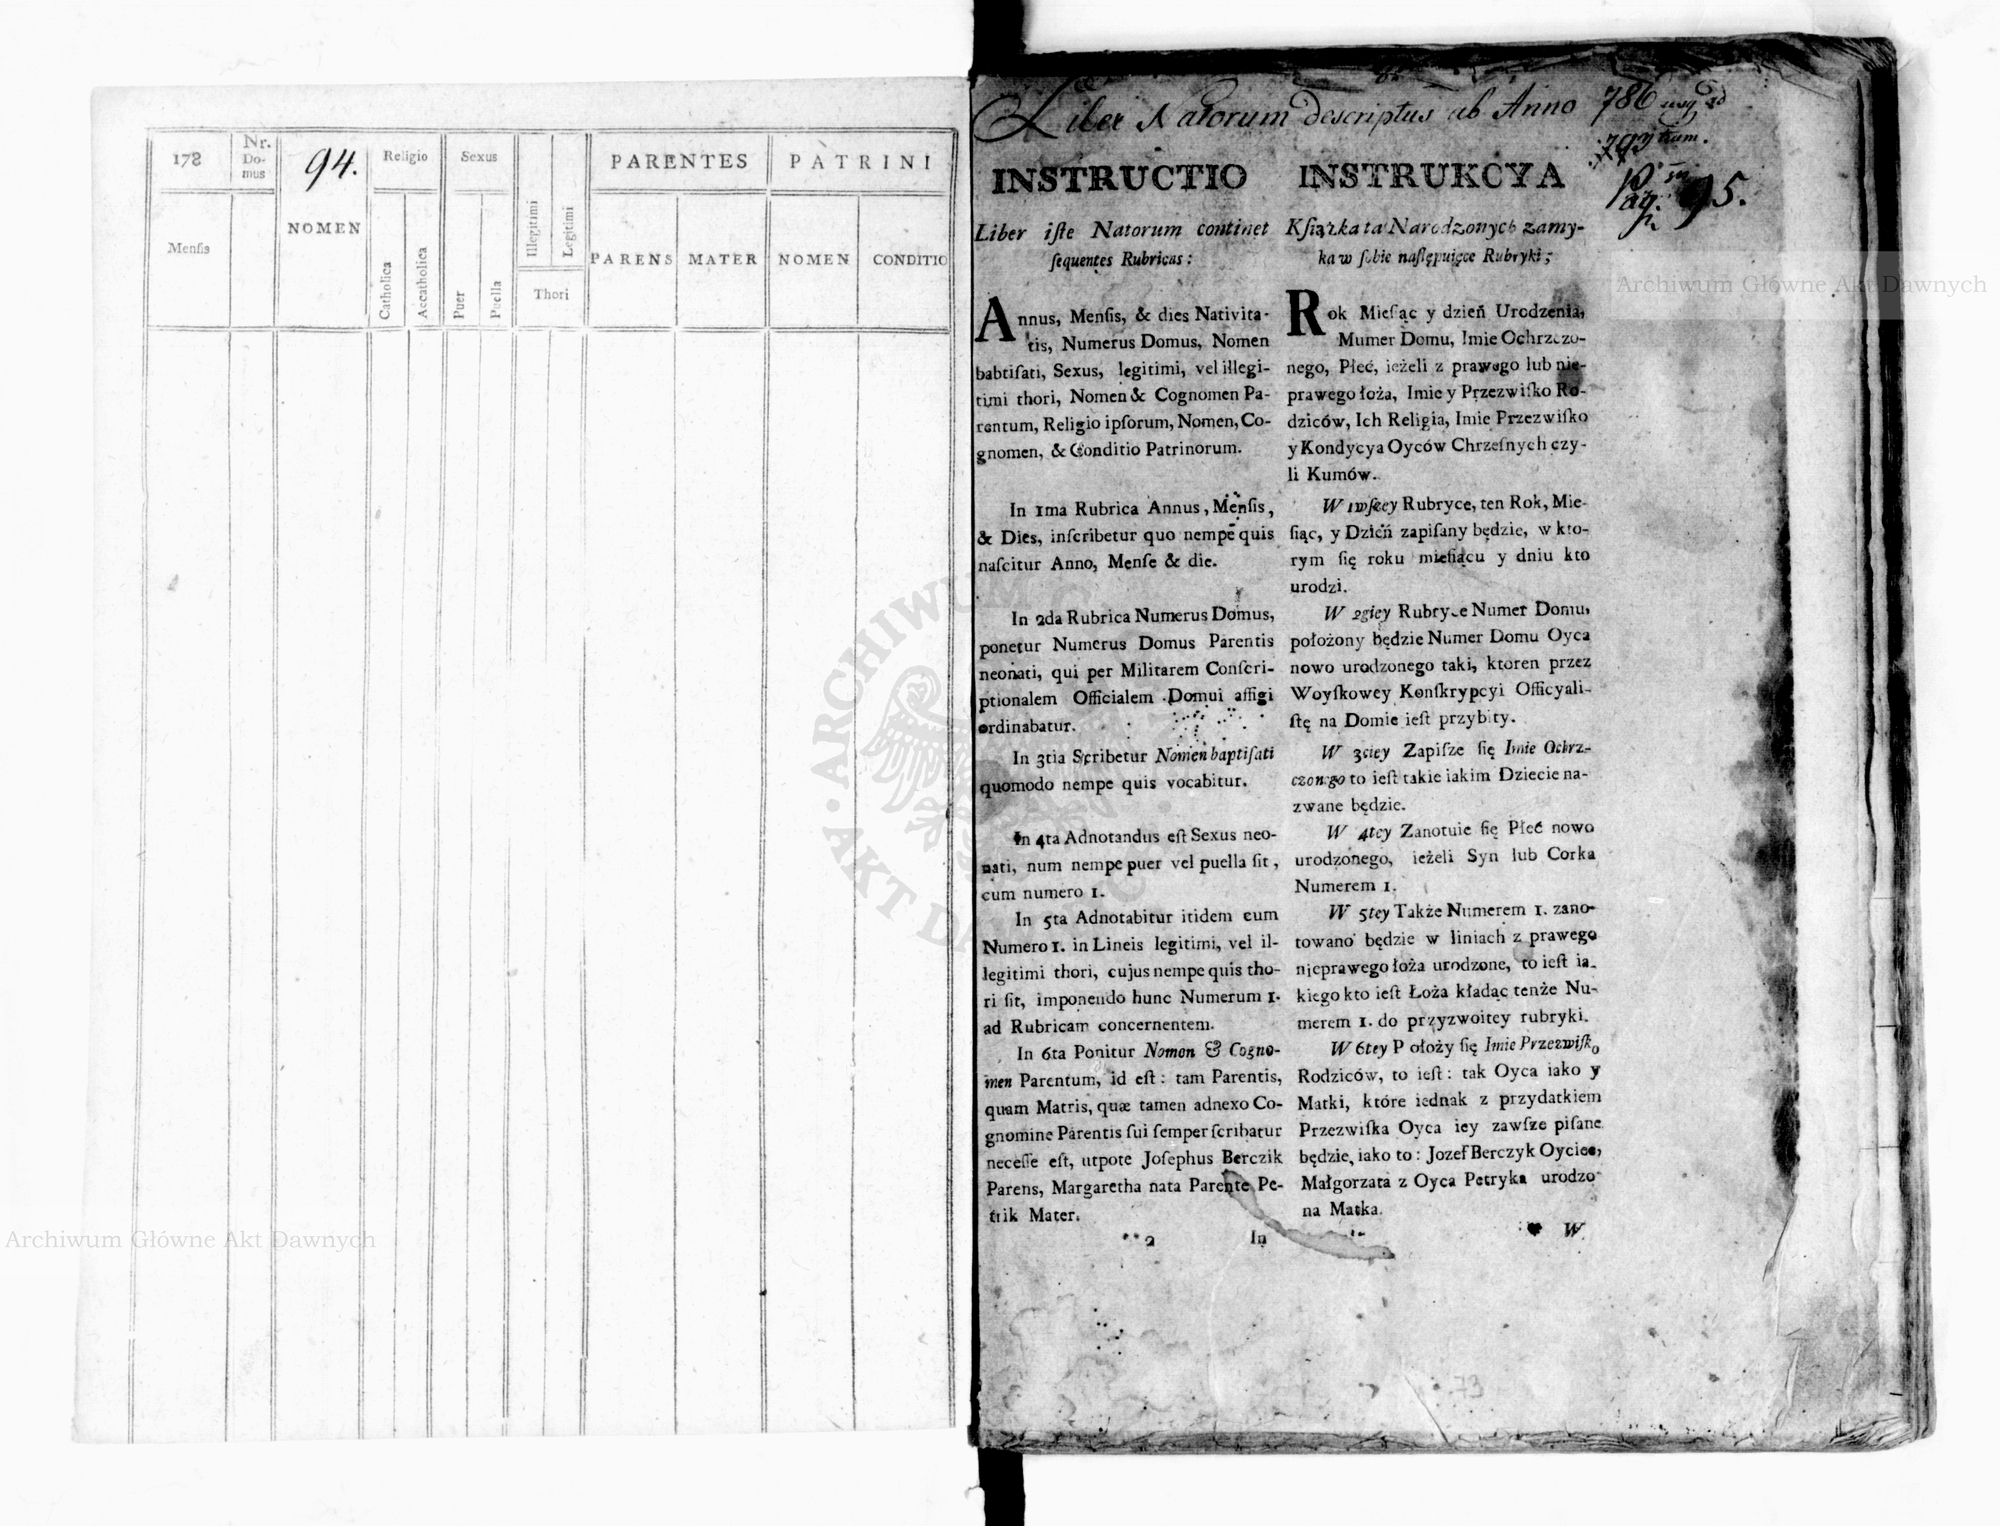 178
Nr.
Do-
mus
94.
Religio
Sexus
PARENTES
PATRINI
Mensis
NOMEN
Catholica
Accatholica
Puer
Puella
Illegitimi
Legitimi
Thori
PARENS
MATER
NOMEN
CONDITIO
Liber Natorum descriptus ab Anno 786 usq ad
Pag. 95.
INSTRUCTIO
Liber iſte Natorum continet
ſequentes Rubricas:
Annus, Menſis, & dies Nativita-
tis, Numerus Domus, Nomen
babtiſati, Sexus, legitimi, vel illegi-
timi thori, Nomen & Cognomen Pa-
rentum, Religio ipſorum, Nomen, Co-
gnomen, & Conditio Patrinorum.
In 1ma Rubrica Annus, Menſis,
& Dies, inſcribetur quo nempe quis
naſcitur Anno, Menſe & die.
In 2da Rubrica Numerus Domus,
ponetur Numerus Domus Parentis
neonati, qui per Militarem Conſcri-
ptionalem Officialem Domui affigi
ordinabatur.
In 3tia Scribetur Nomen baptiſati
quomodo nempe quis vocabitur.
In 4ta Adnotandus eſt Sexus neo-
nati, num nempe puer vel puella ſit,
cum numero 1.
In 5ta Adnotabitur itidem cum
Numero 1. in Lineis legitimi, vel il-
legitimi thori, cujus nempe quis tho-
ri ſit, imponendo hunc Numerum 1.
ad Rubricam concernentem.
In 6ta Ponitur Nomen & Cogno-
men Parentum, id eſt: tam Parentis,
quam Matris, quæ tamen adnexo Co-
gnomine Parentis ſui ſemper ſcribatur
neceſſe eſt, utpote Joſephus Berczik
Parens, Margaretha nata Parente Pe-
trik Mater.
2
In
INSTRUKCYA
Kſiążka ta Narodzonych zamy-
ka w ſobie naſtępuiące Rubryki;
Rok Mieſiąc y dzień Urodzenia,
Mumer Domu, Imie Ochrzczo-
nego, Płeć, ieżeli z prawego lub nie-
prawego łoża, Imie y Przezwiſko Ro-
dziców, Ich Religia, Imie Przezwiſko
y Kondycya Oyców Chrzeſnych czy-
li Kumów.
W 1wſzey Rubryce, ten Rok, Mie-
ſiąc, y Dzień zapiſany będzie, w kto-
rym ſię roku mieſiącu y dniu kto
urodzi.
W 2giey Rubryce Numer Domu,
położony będzie Numer Domu Oyca
nowo urodzonego taki, ktoren przez
Woyſkowey Konſkrypcyi Officyali-
ſtę na Domie ieſt przybity.
W 3ciey Zapiſze ſię Imie Ochrz-
czonego to ieſt takie iakim Dziecie na-
zwane będzie.
W 4tey Zanotuie ſię Płeć nowo
urodzonego, ieżeli Syn lub Corka
Numerem 1.
W 5tey Także Numerem 1. zano-
towano będzie w liniach z prawego
nieprawego łoża urodzone, to ieſt ia-
kiego kto ieſt Łoża kładąc tenże Nu-
merem 1. do przyzwoitey rubryki.
W 6tey P ołoży ſię Imie Przezwiſko
Rodziców, to ieſt: tak Oyca iako y
Matki, które iednak z przydatkiem
Przezwiſka Oyca iey zawſze piſane
będzie, iako to: Jozef Berczyk Oyciec,
Małgorzata z Oyca Petryka urodzo
na Matka.
W
73
Archiwum Główne Akt Dawnych
Archiwum Główne Akt Dawnych